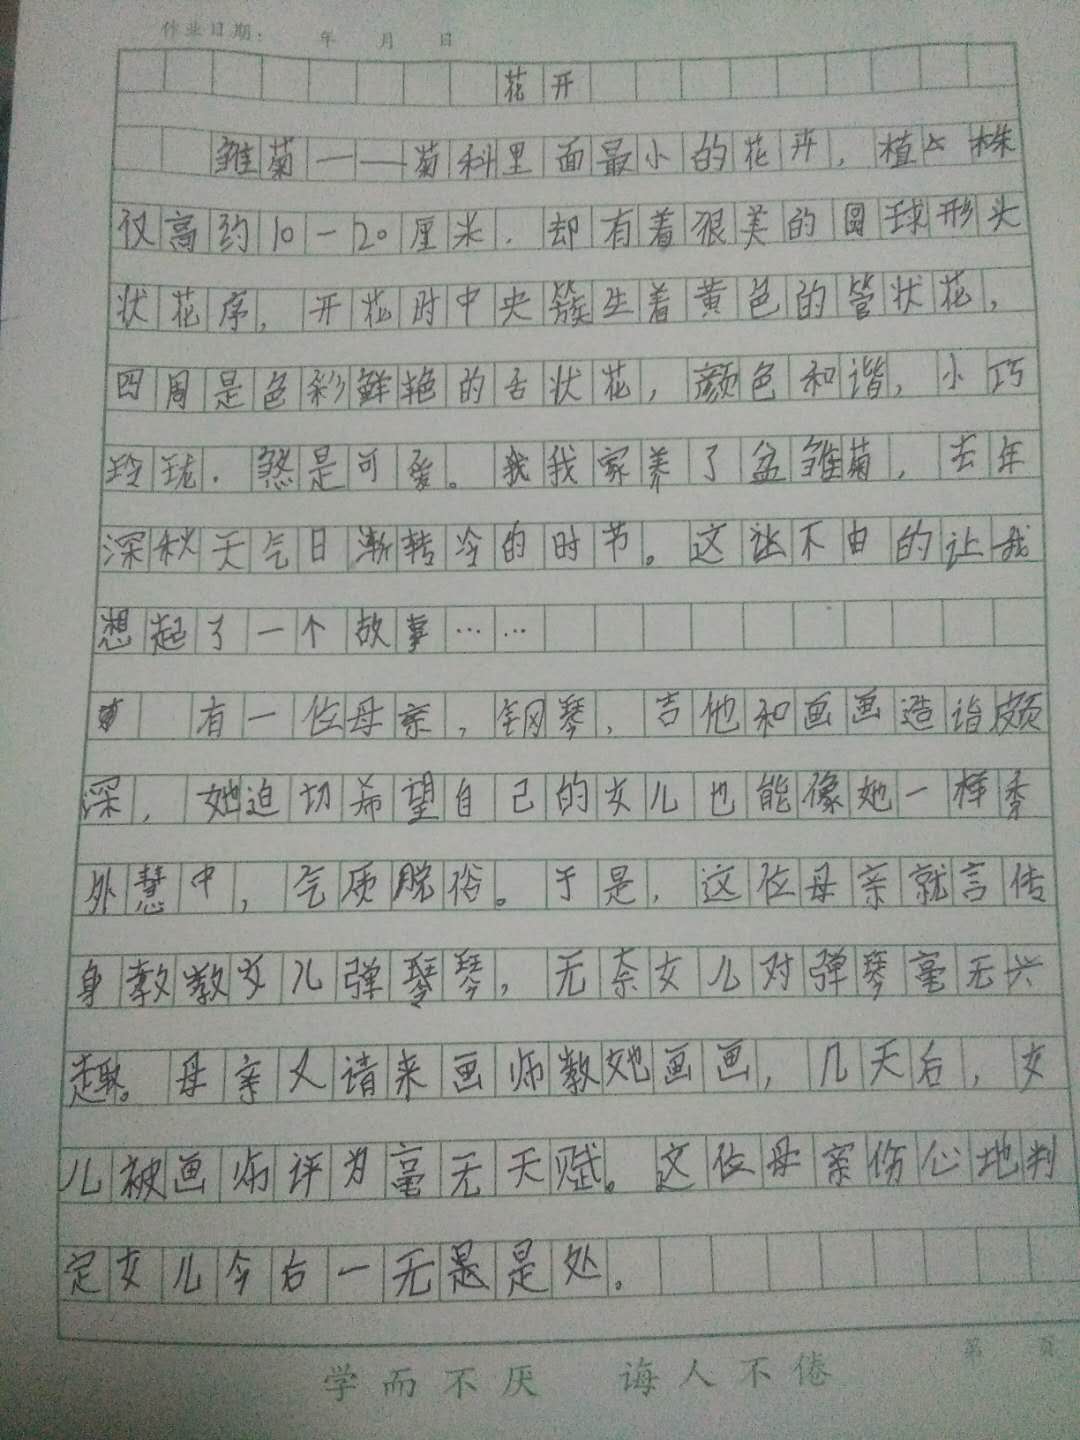 作业日期： 年 月 日
花开
雏菊——菊科里面最小的花卉，植株
仅高约10-20厘米，却有着很美的圆球形头
状花序，开花时中央簇生着黄色的管状花，
四周是色彩鲜艳的舌状花，颜色和谐，小巧
玲珑，煞是可爱。我家养了盆雏菊，去年
深秋天气日渐转冷的时节。这让不由的让我
想起了一个故事……
有一位母亲，钢琴，吉他和画画造诣颇
深，她迫切希望自己的女儿也能像她一样秀
外慧中，气质脱俗。于是，这位母亲就言传
身教教女儿弹琴，无奈女儿对弹琴毫无兴
趣。母亲又请来画师教她画画，几天后，女
儿被画师评为毫无天赋。这位母亲伤心地判
定女儿今后一无是处。
第 页
学而不厌 诲人不倦